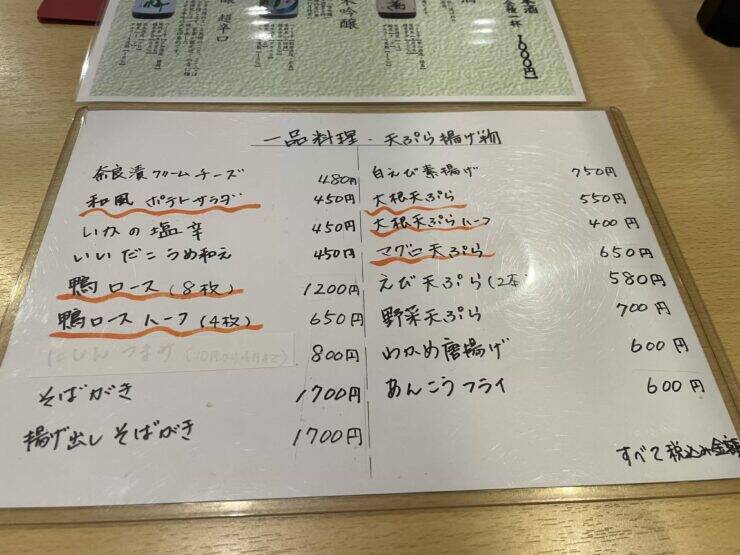 超辛口
吟醸
一杯 1000円
一品料理・天ぷら揚げ物
奈良漬クリームチーズ 480円
和風 ポテトサラダ 450円
いかの塩辛 450円
いいだこうめ和え 450円
鴨ロース(8枚) 1200円
鴨ロースハーフ(4枚) 650円
にしんつまみ(10月から4月まで) 800円
そばがき 1700円
揚げ出しそばがき 1700円
白えび素揚げ 750円
大根天ぷら 550円
大根天ぷらハーフ 400円
マグロ天ぷら 650円
えび天ぷら(2本 580円
野菜天ぷら 700円
わかめ唐揚げ 600円
あんこうフライ 600円
すべて税込み金額